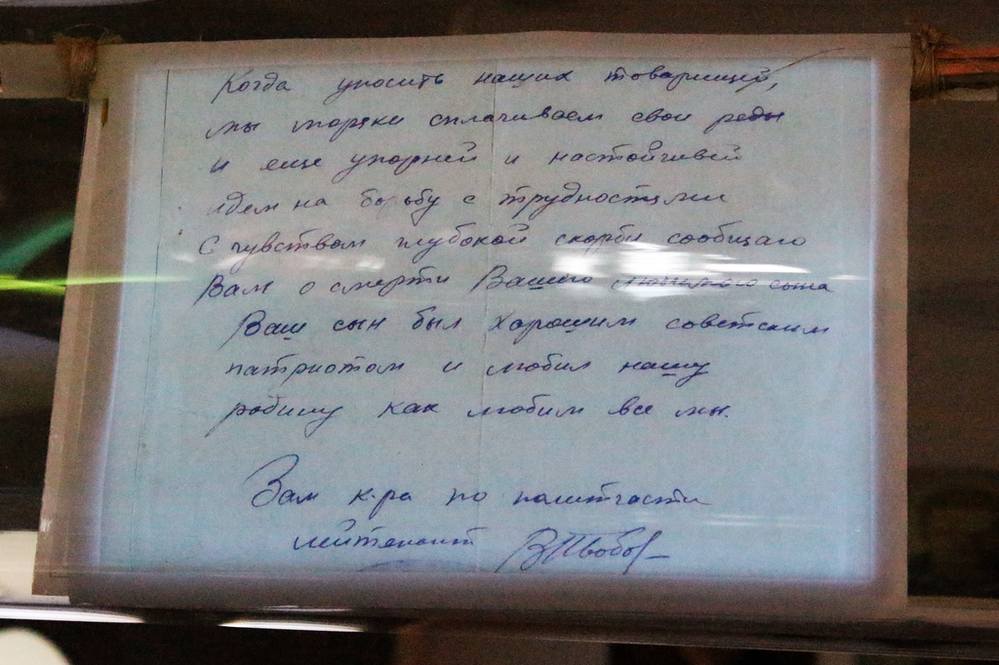 Когда уносить наших товарищей,
мы моряки сплачиваем свои ряды
и еще упорней и настойчивей
идем на борьбу с трудностями
С чувством глубокой скорби сообщаю
Вам о смерти Вашего любимого сына
Ваш сын был хорошим советским
патриотом и любил нашу
родину как любим все мы.
Зам к-ра по политчасти
лейтенант